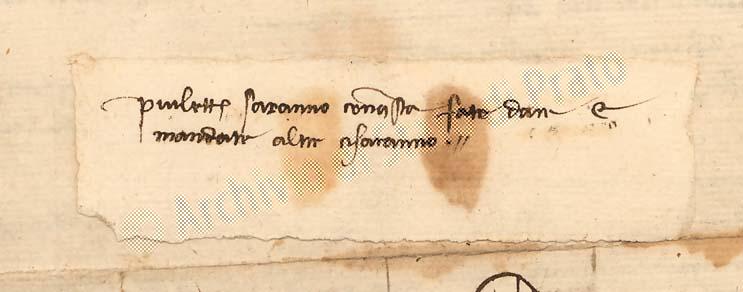 piu lett saranno conqsta fate dare e
mandate altre cisaranno
© Archivio di Stato di Prato